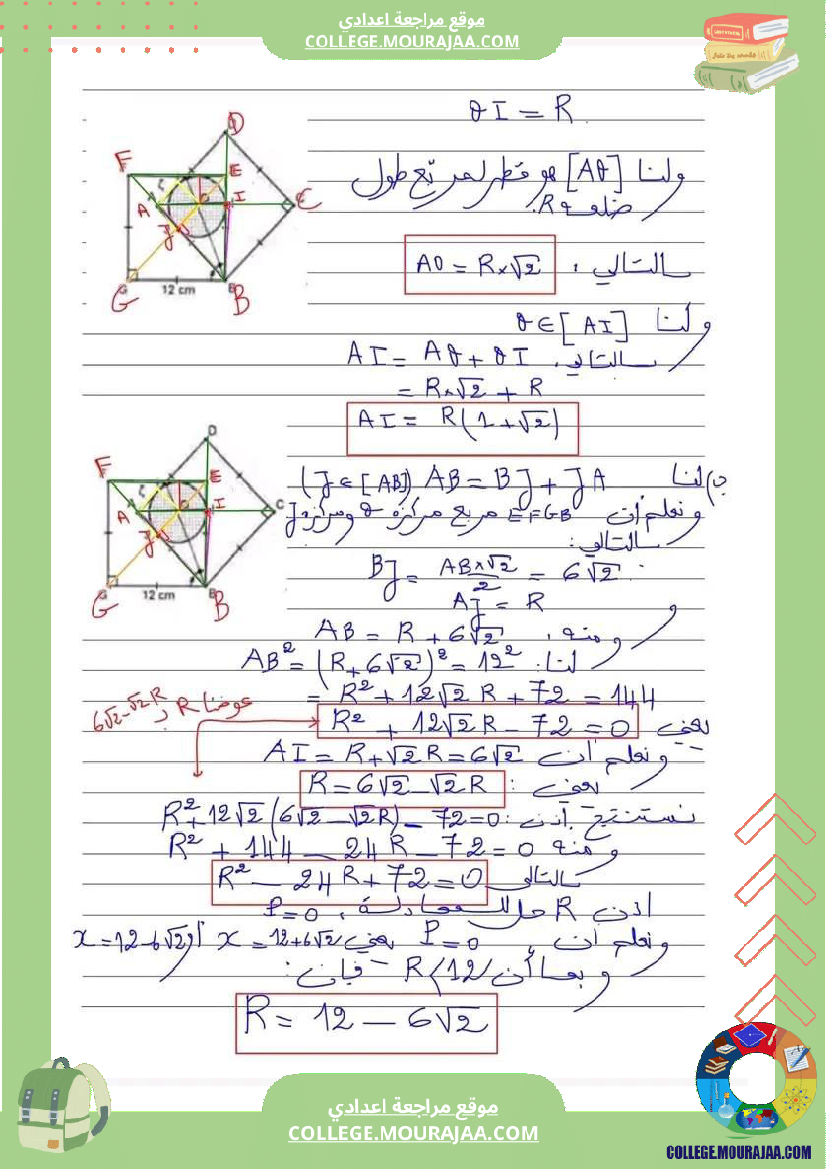 موقع مراجعة اعدادي
COLLEGE.MOURAJAA.COM
θI = R
ولنا [Aθ] هو قطر لمربع طول
ضلعه R.
بالتالي: AO = R×√2
ولنا θ∈[AI]
بالتالي: AI = Aθ + θI
= R×√2 + R
AI = R(1+√2)
F D E A I C J G B 12 cm
ب) لنا AB = BJ + JA (J∈[AB])
ونعلم أن EFGB مربع مركزه θ ومركزه J
بالتالي:
BJ = AB×√2/2 = 6√2
و AJ = R
ومنه: AB = R + 6√2
لنا: AB² = (R+6√2)² = 12²
= R² + 12√2 R + 72 = 144
يعني R² + 12√2 R - 72 = 0
عوضنا R بـ 6√2-√2R
ونعلم أن AI = R+√2 R = 6√2
يعني: R = 6√2 - √2R
نستنتج إذن: R² + 12√2(6√2 - √2R) - 72 = 0
ومنه R² + 144 - 24R - 72 = 0
بالتالي R² - 24R + 72 = 0
إذن R حل للمعادلة: P=0
ونعلم أن P=0 يعني x = 12+6√2 أو x = 12-6√2
وبما أن R<12 فإن:
R = 12 - 6√2
F D E A I C J G B 12 cm
موقع مراجعة اعدادي
COLLEGE.MOURAJAA.COM
COLLEGE.MOURAJAA.COM